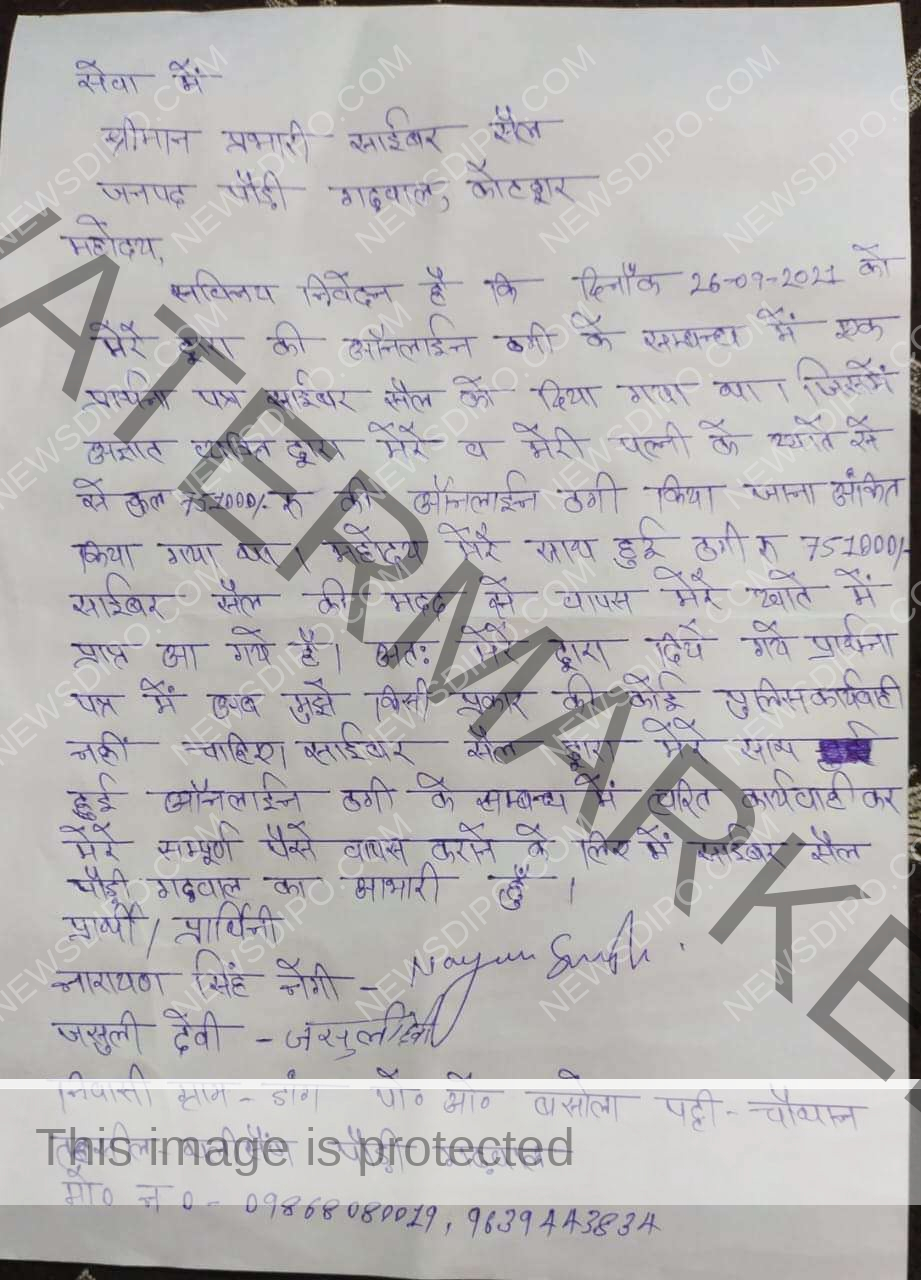 सेवा में
श्रीमान प्रभारी साईबर सैल
जनपद पौड़ी गढ़वाल, कोटद्वार
महोदय,
सविनय निवेदन है कि दिनाँक 26-09-2021 को
मेरे द्वारा की ऑनलाईन ठगी के सम्बन्ध में एक
प्रार्थना पत्र साईबर सैल को दिया गया था। जिसमें
अज्ञात व्यक्ति द्वारा मेरे व मेरी पत्नी के खाते से
से कुल 751000/- रु की ऑनलाईन ठगी किया जाना अंकित
किया गया था। महोदय मेरे साथ हुई ठगी रु 751000/-
साईबर सैल की मदद से वापस मेरे खाते में
प्राप्त आ गये है। अतः मेरे द्वारा दिये गये प्रार्थना
पत्र में अब मुझे किसी प्रकार की कोई पुलिस कार्यवाही
नहीं चाहिए। साईबर सैल द्वारा मेरे साथ
हुई ऑनलाईन ठगी के सम्बन्ध में त्वरित कार्यवाही कर
मेरे सम्पूर्ण पैसे वापस कराने के लिए मैं साईबर सैल
पौड़ी गढ़वाल का आभारी हूँ।
प्रार्थी / प्रार्थिनी
नारायण सिंह नेगी - Nayan Singh
जसुली देवी - जसुली देवी
निवासी ग्राम - डांग पो० ओ० बसोला पट्टी - चौथान
पौड़ी गढ़वाल
मो० न० - 09868080019, 9639443834
WATERMARKE
NEWSDIPO.COM
This image is protected